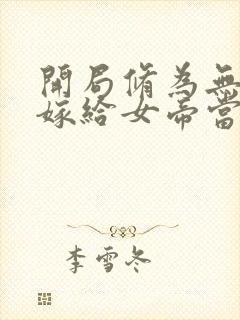 開局脩為無
嫁給女帝當
李雪冬